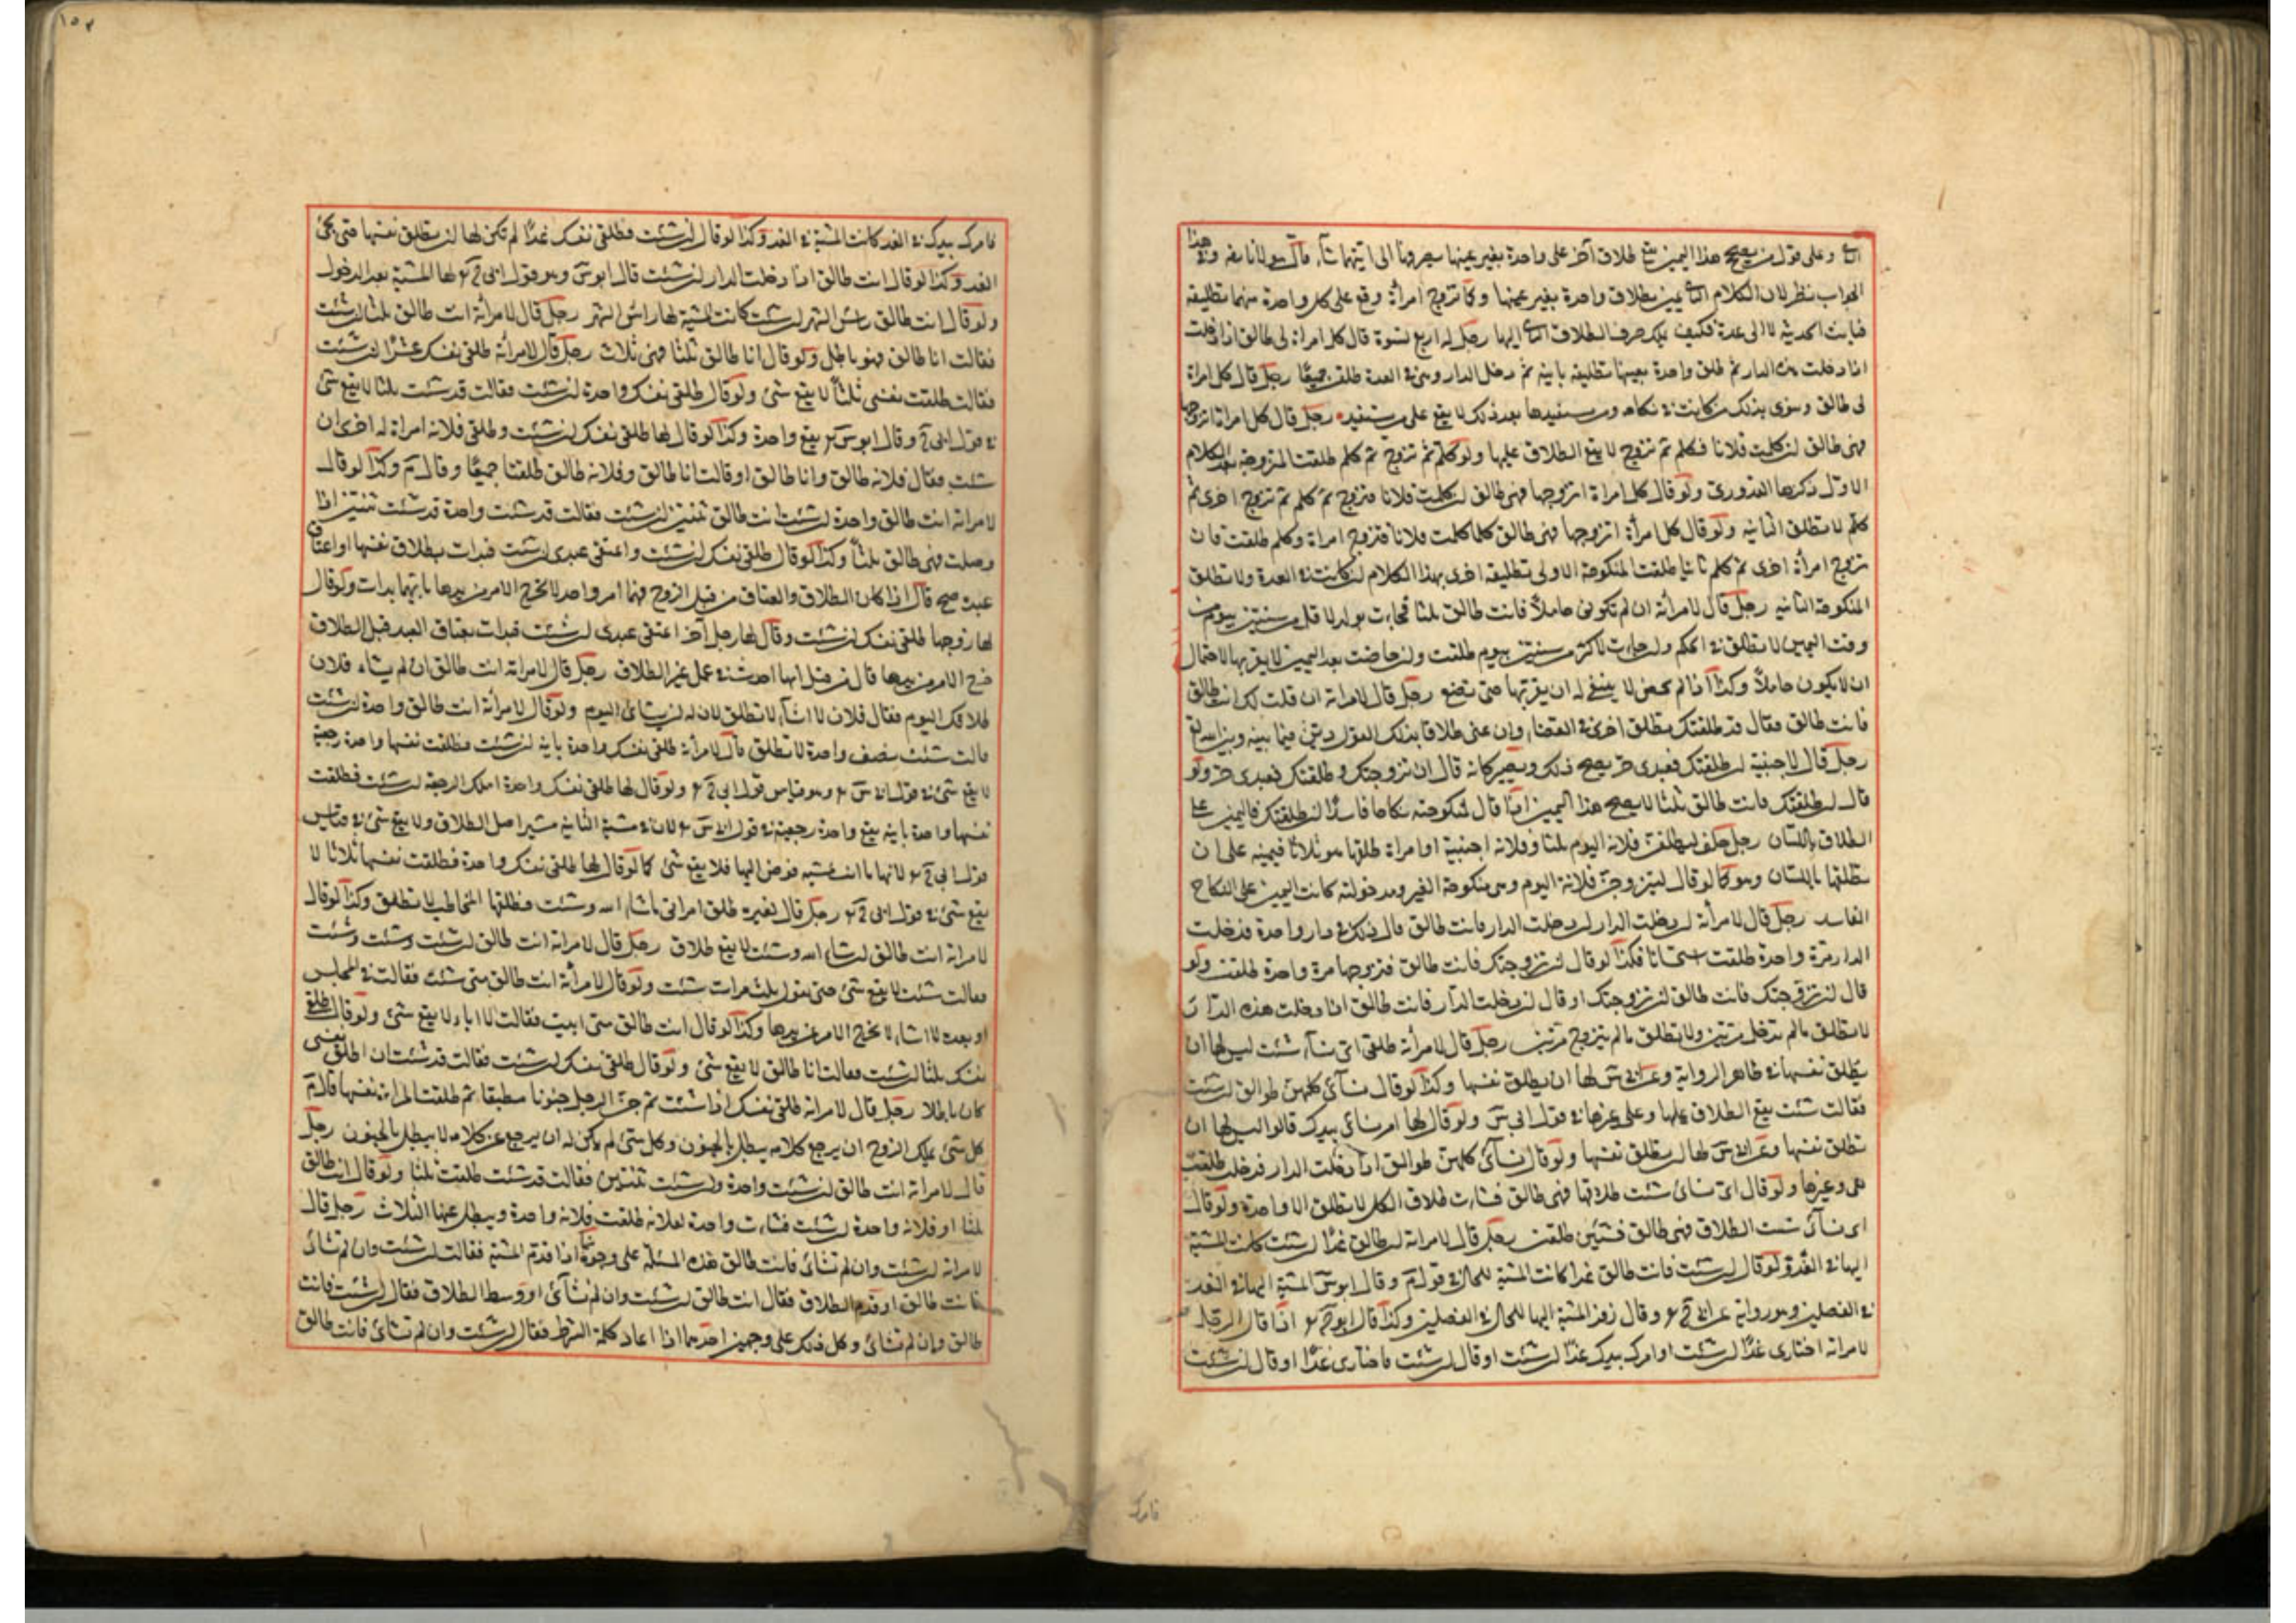 وعلى قول من يصحح هذا اليمين يقع طلاق آخر على واحدة بغير عينها يصرفها الى ايتهما شاء قال مولانا رضه وفي هذا
الجواب نظر لان الكلام يمين بطلاق واحدة بغير عينها وكما تزوج امرأة وقع على كل واحدة منهما تطليقة
فبانت لا الى عدة فكيف يملك صرف الطلاق اليها رجل له اربع نسوة قال كل امراة لى طالق اذا دخلت
اذا دخلت هذه الدار ثم طلق واحدة بعينها تطليقة باينة ثم دخل الدار وهى فى العدة طلقن جميعًا رجل قال كل امراة
لى طالق ونوى بذلك من كانت فى نكاحه ومن يستفيدها بعد ذلك لا يقع على من يستفيده رجل قال كل امراة اتزوجها
فهى طالق ان كلمت فلانا فكلم ثم تزوج لا يقع الطلاق عليها ولو كلم ثم تزوج ثم كلم طلقت المتزوجة بعد الكلام
الاول ذكرها القدورى ولو قال كل امراة اتزوجها فهى طالق ان كلمت فلانا فتزوج ثم كلم ثم تزوج اخرى ثم
كلم لا تطلق الثانية ولو قال كل امرأة اتزوجها فهى طالق كلما كلمت فلانا فتزوج امراة وكلم طلقت فان
تزوج امرأة اخرى ثم كلم ثانيا طلقت المنكوحة الاولى تطليقة اخرى بهذا الكلام ان كانت فى العدة ولا تطلق
المنكوحة الثانية رجل قال لامرأته ان لم تكونى حاملاً فانت طالق ثلثا فجاءت بولد لاقل من سنتين بيوم من
وقت اليمين لا تطلق فى الحكم وان جاءت لاكثر من سنتين بيوم طلقت وان حاضت بعد اليمين لا يقربها لاحتمال
ان لا يكون حاملاً وكذا اذا لم تحض لا ينبغى له ان يقربها حتى تضع رجل قال لامراته ان قلت لك انت طالق
فانت طالق فقال قد طلقتك تطلق اخرى فى القضاء وان عنى طلاقا بذلك القول دين فيما بينه وبين الله تع
رجل قال لاجنبية ان طلقتك فعبدى حر يصح ذلك ويصير كانه قال ان تزوجتك وطلقتك فعبدى حر ولو
قال ان طلقتك فانت طالق ثلثا لا يصح هذا اليمين اذا قال لمنكوحته نكاحا فاسدًا ان طلقتك فاليمين على
الطلاق باللسان رجل حلف ليطلقن فلانة اليوم ثلثا وفلانة اجنبية او امراة طلقها هو ثلاثا فيمينه على ان
يطلقها باللسان وهو كما لو قال ليتزوجن فلانة اليوم وهى منكوحة الغير ومدخولته كانت اليمين على النكاح
الفاسد رجل قال لامرأته ان دخلت الدار ان دخلت الدار فانت طالق قال ذلك فى دار واحدة فدخلت
الدار مرة واحدة طلقت استحسانا فكذا لو قال ان تزوجتك ان تزوجتك فانت طالق فتزوجها مرة واحدة طلقت ولو
قال ان تزوجتك فانت طالق ان تزوجتك او قال ان دخلت الدار فانت طالق اذا دخلت هذه الدار
لا تطلق ما لم تدخل مرتين ولا تطلق ما لم يتزوج مرتين رجل قال لامرأته طلقى اى نسآئى شئت ليس لها ان
يطلق نفسها فى ظاهر الرواية وعن ابى س لها ان يطلق نفسها وكذا لو قال نسآئى كلهن طوالق ان شئت
فقالت شئت يقع الطلاق عليها وعلى غيرها فى قول ابى س ولو قال لها امر نسائى بيدك قالوا ليس لها ان
تطلق نفسها وعن ابى س لها ان يطلق نفسها ولو قال نسآئى كلهن طوالق اذا دخلت الدار فدخلت طلقت
هى وغيرها ولو قال اى نسائى شئت طلاقها فهى طالق فشاءت طلاق الكل لا تطلق الا واحدة ولو قال
اى نسآئى شئت الطلاق فهى طالق فشئن طلقن رجل قال لامراته انت طالق غدًا ان شئت كانت المشية
اليها فى الغد ولو قال ان شئت فانت طالق غدا كانت المشية للحال فى قول م وقال ابو س المشية اليها فى الغد
فى الفصلين وهو رواية عن ابى ح وقال زفر المشية اليها للحال فى الفصلين وكذا قال ابو ح اذا قال الرجل
لامراته اختارى غدًا ان شئت او امرك بيدك غدًا ان شئت او قال ان شئت فاختارى غدًا او قال ان شئت
فامرك
١٥٢
فامرك بيدك فى الغد كانت المشية فى الغد وكذا لو قال ان شئت فطلقى نفسك غدًا لم تكن لها ان تطلق نفسها حتى يجئ
الغد وكذا لو قال انت طالق اذا دخلت الدار ان شئت قال ابو س وهو قول ابى ح لها المشية بعد الدخول
ولو قال انت طالق راس الشهر ان شئت كانت المشية لها راس الشهر رجل قال لامرأته انت طالق ثلثا ان شئت
فقالت انا طالق فهو باطل ولو قال انا طالق ثلثا فهى ثلاث رجل قال لامرأته طلقى نفسك عشرًا ان شئت
فقالت طلقت نفسى ثلثًا لا يقع شئ ولو قال طلقى نفسك واحدة ان شئت فقالت قد شئت ثلثا لا يقع شئ
فى قول ابى ح وقال ابو س يقع واحدة وكذا لو قال لها طلقى نفسك ان شئت وطلقى فلانة امراة له اخرى ان
شئت فقال فلانة طالق وانا طالق او قالت انا طالق وفلانة طالق طلقتا جميعًا وقال م وكذا لو قال
لامراته انت طالق واحدة ان شئت انت طالق ثنتين ان شئت فقالت قد شئت واحدة قد شئت ثنتين اذا
وصلت فهى طالق ثلثا وكذا لو قال طلقى نفسك ان شئت واعتقى عبدى ان شئت فبدات بطلاق نفسها او اعتاق
عبده صح قال اذا كان الطلاق والعتاق من قبل الزوج فهما امر واحد لا يخرج الامر من يدها بايتهما بدات ولو قال
لها زوجها طلقى نفسك ان شئت وقال لها رجل آخر اعتقى عبدى ان شئت فبدات بعتاق العبد قبل الطلاق
خرج الامر من يدها قال من قبل انها اخذت فى عمل غير الطلاق رجل قال لامراته انت طالق ان لم يشاء فلان
طلاقك اليوم فقال فلان لا اشآء لا تطلق لان له ان يشاء فى اليوم ولو قال لامرأته انت طالق واحدة ان شئت
قالت شئت نصف واحدة لا تطلق قال لامرأته طلقى نفسك واحدة باينة ان شئت فطلقت نفسها واحدة رجعية
لا يقع شئ فى قول ابى س وهو قياس قول ابى ح ولو قال لها طلقى نفسك واحدة املك الرجعة ان شئت فطلقت
نفسها واحدة باينة يقع واحدة رجعية فى قول ابى س لان فى مشية الثانية مشية اصل الطلاق ولا يقع شئ فى قياس
قول ابى ح لانها ما اتت بمشية فوض اليها فلا يقع شئ كما لو قال لها طلقى نفسك واحدة فطلقت نفسها ثلاثا لا
يقع شئ فى قول ابى ح رجل قال لغيره طلق امراتى ما شاء الله وشئت فطلقها المخاطب لا تطلق وكذا لو قال
لامراته انت طالق ان شاء الله وشئت لا يقع طلاق رجل قال لامراته انت طالق ان شئت وشئت وشئت
فقالت شئت لا يقع شئ حتى تقول ثلث مرات شئت ولو قال لامرأته انت طالق متى شئت فقالت فى المجلس
او بعده لا اشاء لا يخرج الامر من يدها وكذا لو قال انت طالق متى ابيت فقالت لا اباء لا يقع شئ ولو قال طلقى
نفسك ثلثا ان شئت فقالت انا طالق لا يقع شئ ولو قال طلقى نفسك ان شئت فقالت قد شئت ان اطلق نفسى
كان باطلا رجل قال لامراته طلقى نفسك اذا شئت ثم جن الرجل جنونا مطبقا ثم طلقت المراة نفسها قال م
كل شئ يملك الزوج ان يرجع كلامه يبطل بالجنون وكل شئ لم يكن له ان يرجع عن كلامه لا يبطل بالجنون رجل
قال لامراته انت طالق ان شئت واحدة وان شئت ثنتين فقالت قد شئت طلقت ثلثا ولو قال انت طالق
ثلثا او فلانة واحدة ان شئت فشاءت واحدة لفلانة طلقت فلانة واحدة ويبطل عنها الثلاث رجل قال
لامراته ان شئت وان لم تشائ فانت طالق هذه المسئلة على وجوه اذا قدم المشية فقالت ان شئت وان لم تشائ
فانت طالق او قدم الطلاق فقال انت طالق ان شئت وان لم تشآئ او وسط الطلاق فقال ان شئت فانت
طالق وان لم تشائ وكل ذلك على وجهين احدهما اذا اعاد كلمة الشرط فقال ان شئت وان لم تشائ فانت طالق